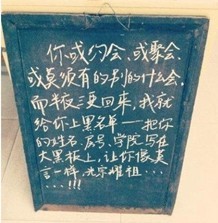 你或约会、或聚会、
或莫须有的别的什么会、
而半夜三更回来，我就
给你上黑名单——把你
的姓名、房号、学院写在
大黑板上，让你像莫
言一样，光宗耀祖……
……!!!